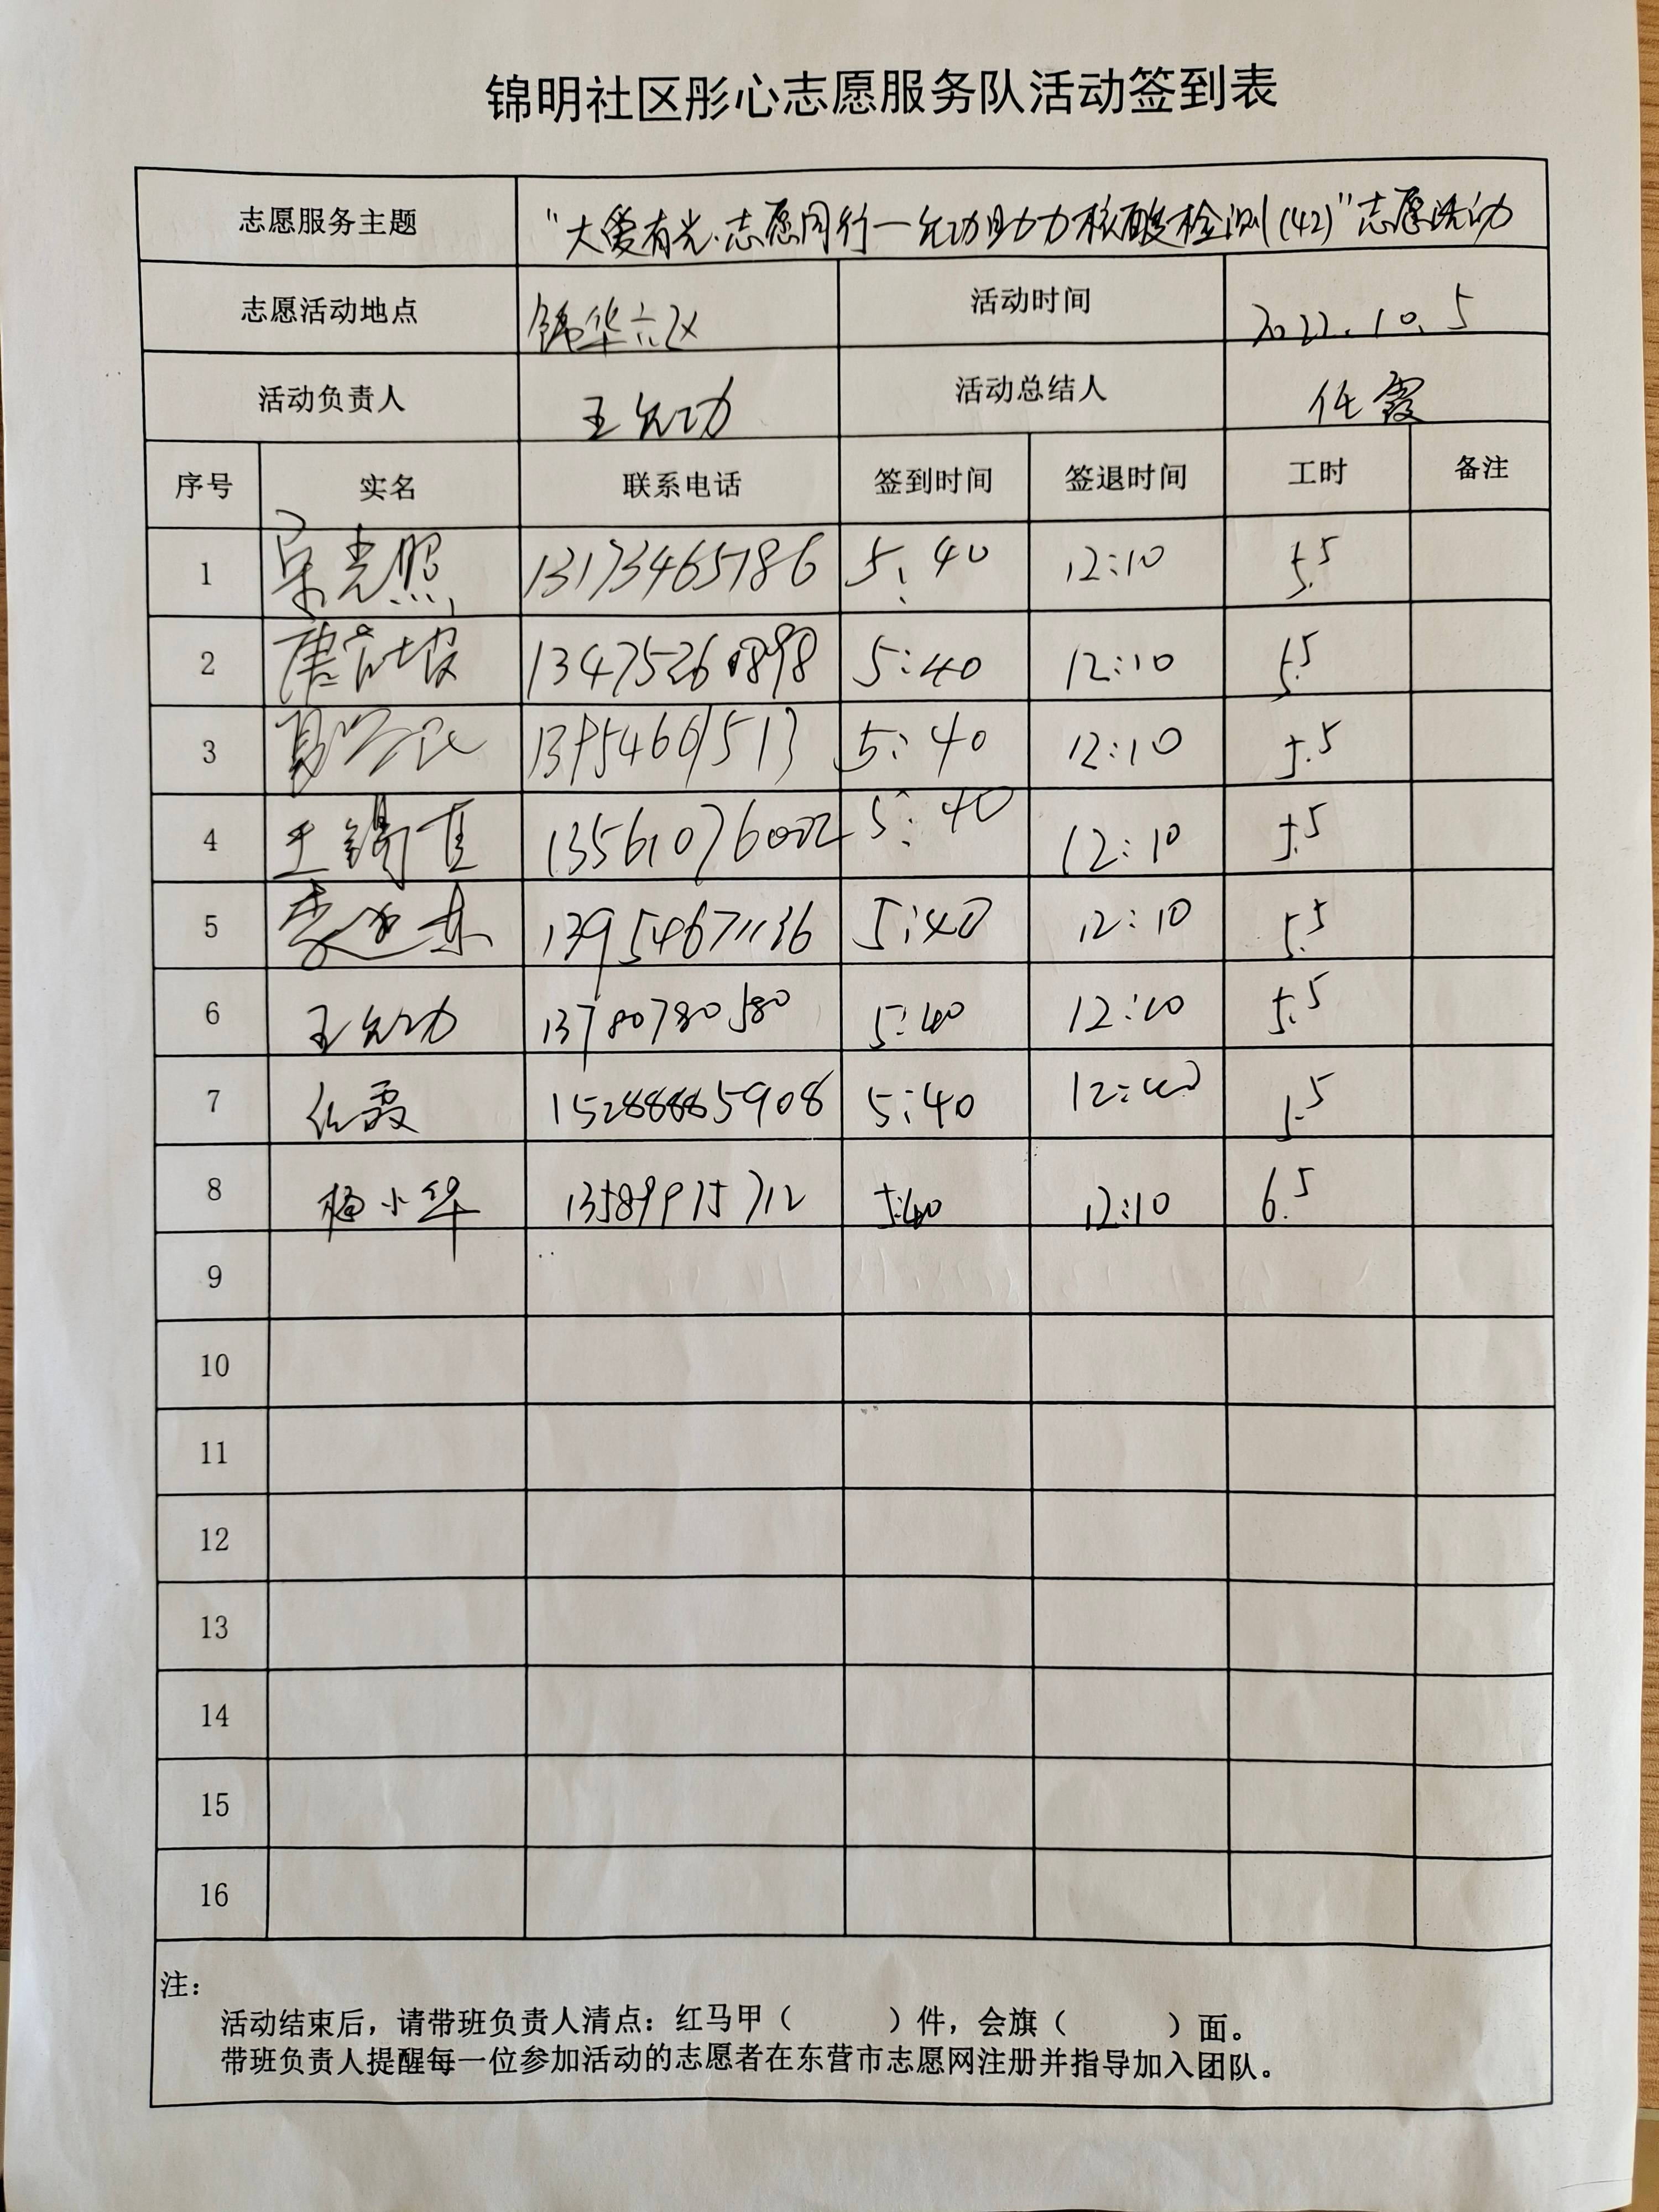 锦明社区彤心志愿服务队活动签到表
志愿服务主题 “大爱有光.志愿同行—允功助力核酸检测(42)”志愿活动
志愿活动地点 锦华六区 活动时间 2022.10.5
活动负责人 王允功 活动总结人 任霞
序号 实名 联系电话 签到时间 签退时间 工时 备注
1 宋光照 13173465786 5:40 12:10 5.5
2 唐 13475260898 5:40 12:10 5.5
3 13954661513 5:40 12:10 5.5
4 王锡直 13561076002 5:40 12:10 5.5
5 李建东 13954671136 5:40 12:10 5.5
6 王允功 13780780580 5:40 12:10 5.5
7 任霞 15288885908 5:40 12: 5.5
8 杨小华 13589975712 5:40 12:10 6.5
9
10
11
12
13
14
15
16
注：
活动结束后，请带班负责人清点：红马甲（ ）件，会旗（ ）面。
带班负责人提醒每一位参加活动的志愿者在东营市志愿网注册并指导加入团队。